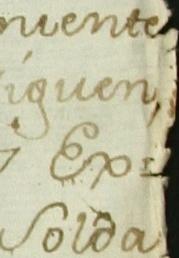 niente
iguen,
Ex=
Solda